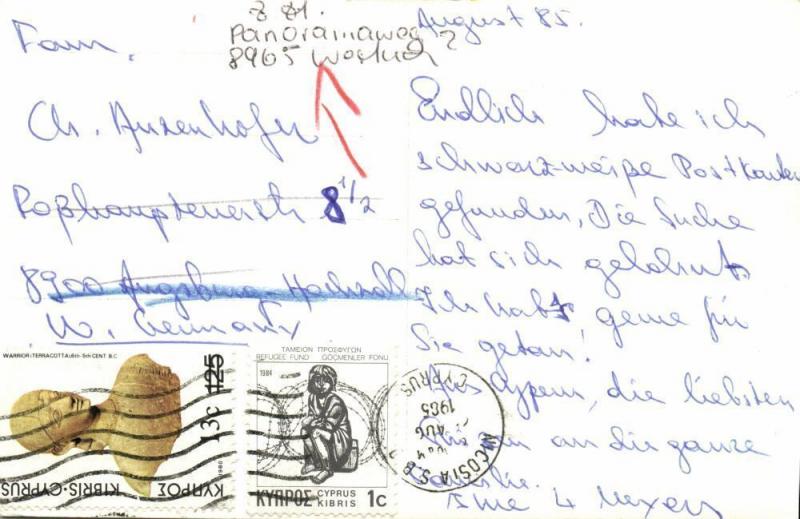 z. Zt.
Panoramaweg 2
8965
Fam.
Ch. Anzenhofer
Roßhauptenerstr 8 1/2
8900 Augsburg-Hochzoll
W. Germany
August 85.
Endlich habe ich
schwarz-weiße Postkarten
gefunden, Die Suche
hat sich gelohnt.
Ich hab's gerne für
Sie getan!
Aus Zypern, die liebsten
an die ganze
Familie.
Ihre 4
WARRIOR-TERRACOTTA:6th-5th CENT B.C
125
13c
1980
KIBRIS·CYPRUS ΚΥΠΡΟΣ
ΤΑΜΕΙΟΝ ΠΡΟΣΦΥΓΩΝ
REFUGEE FUND GÖÇMENLER FONU
1984
ΚΥΠΡΟΣ CYPRUS KIBRIS 1c
NICOSIA
AUG
1985
CYPRUS